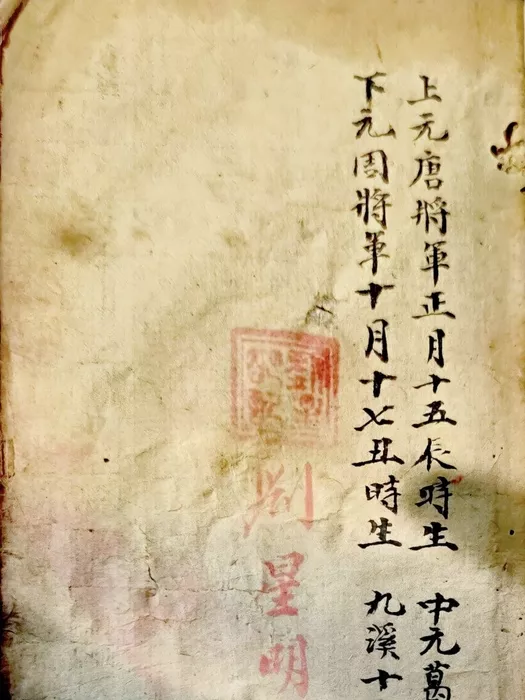 上元唐將軍正月十五辰時生 中元葛
下元周將軍十月十七丑時生 九溪十
劉星明